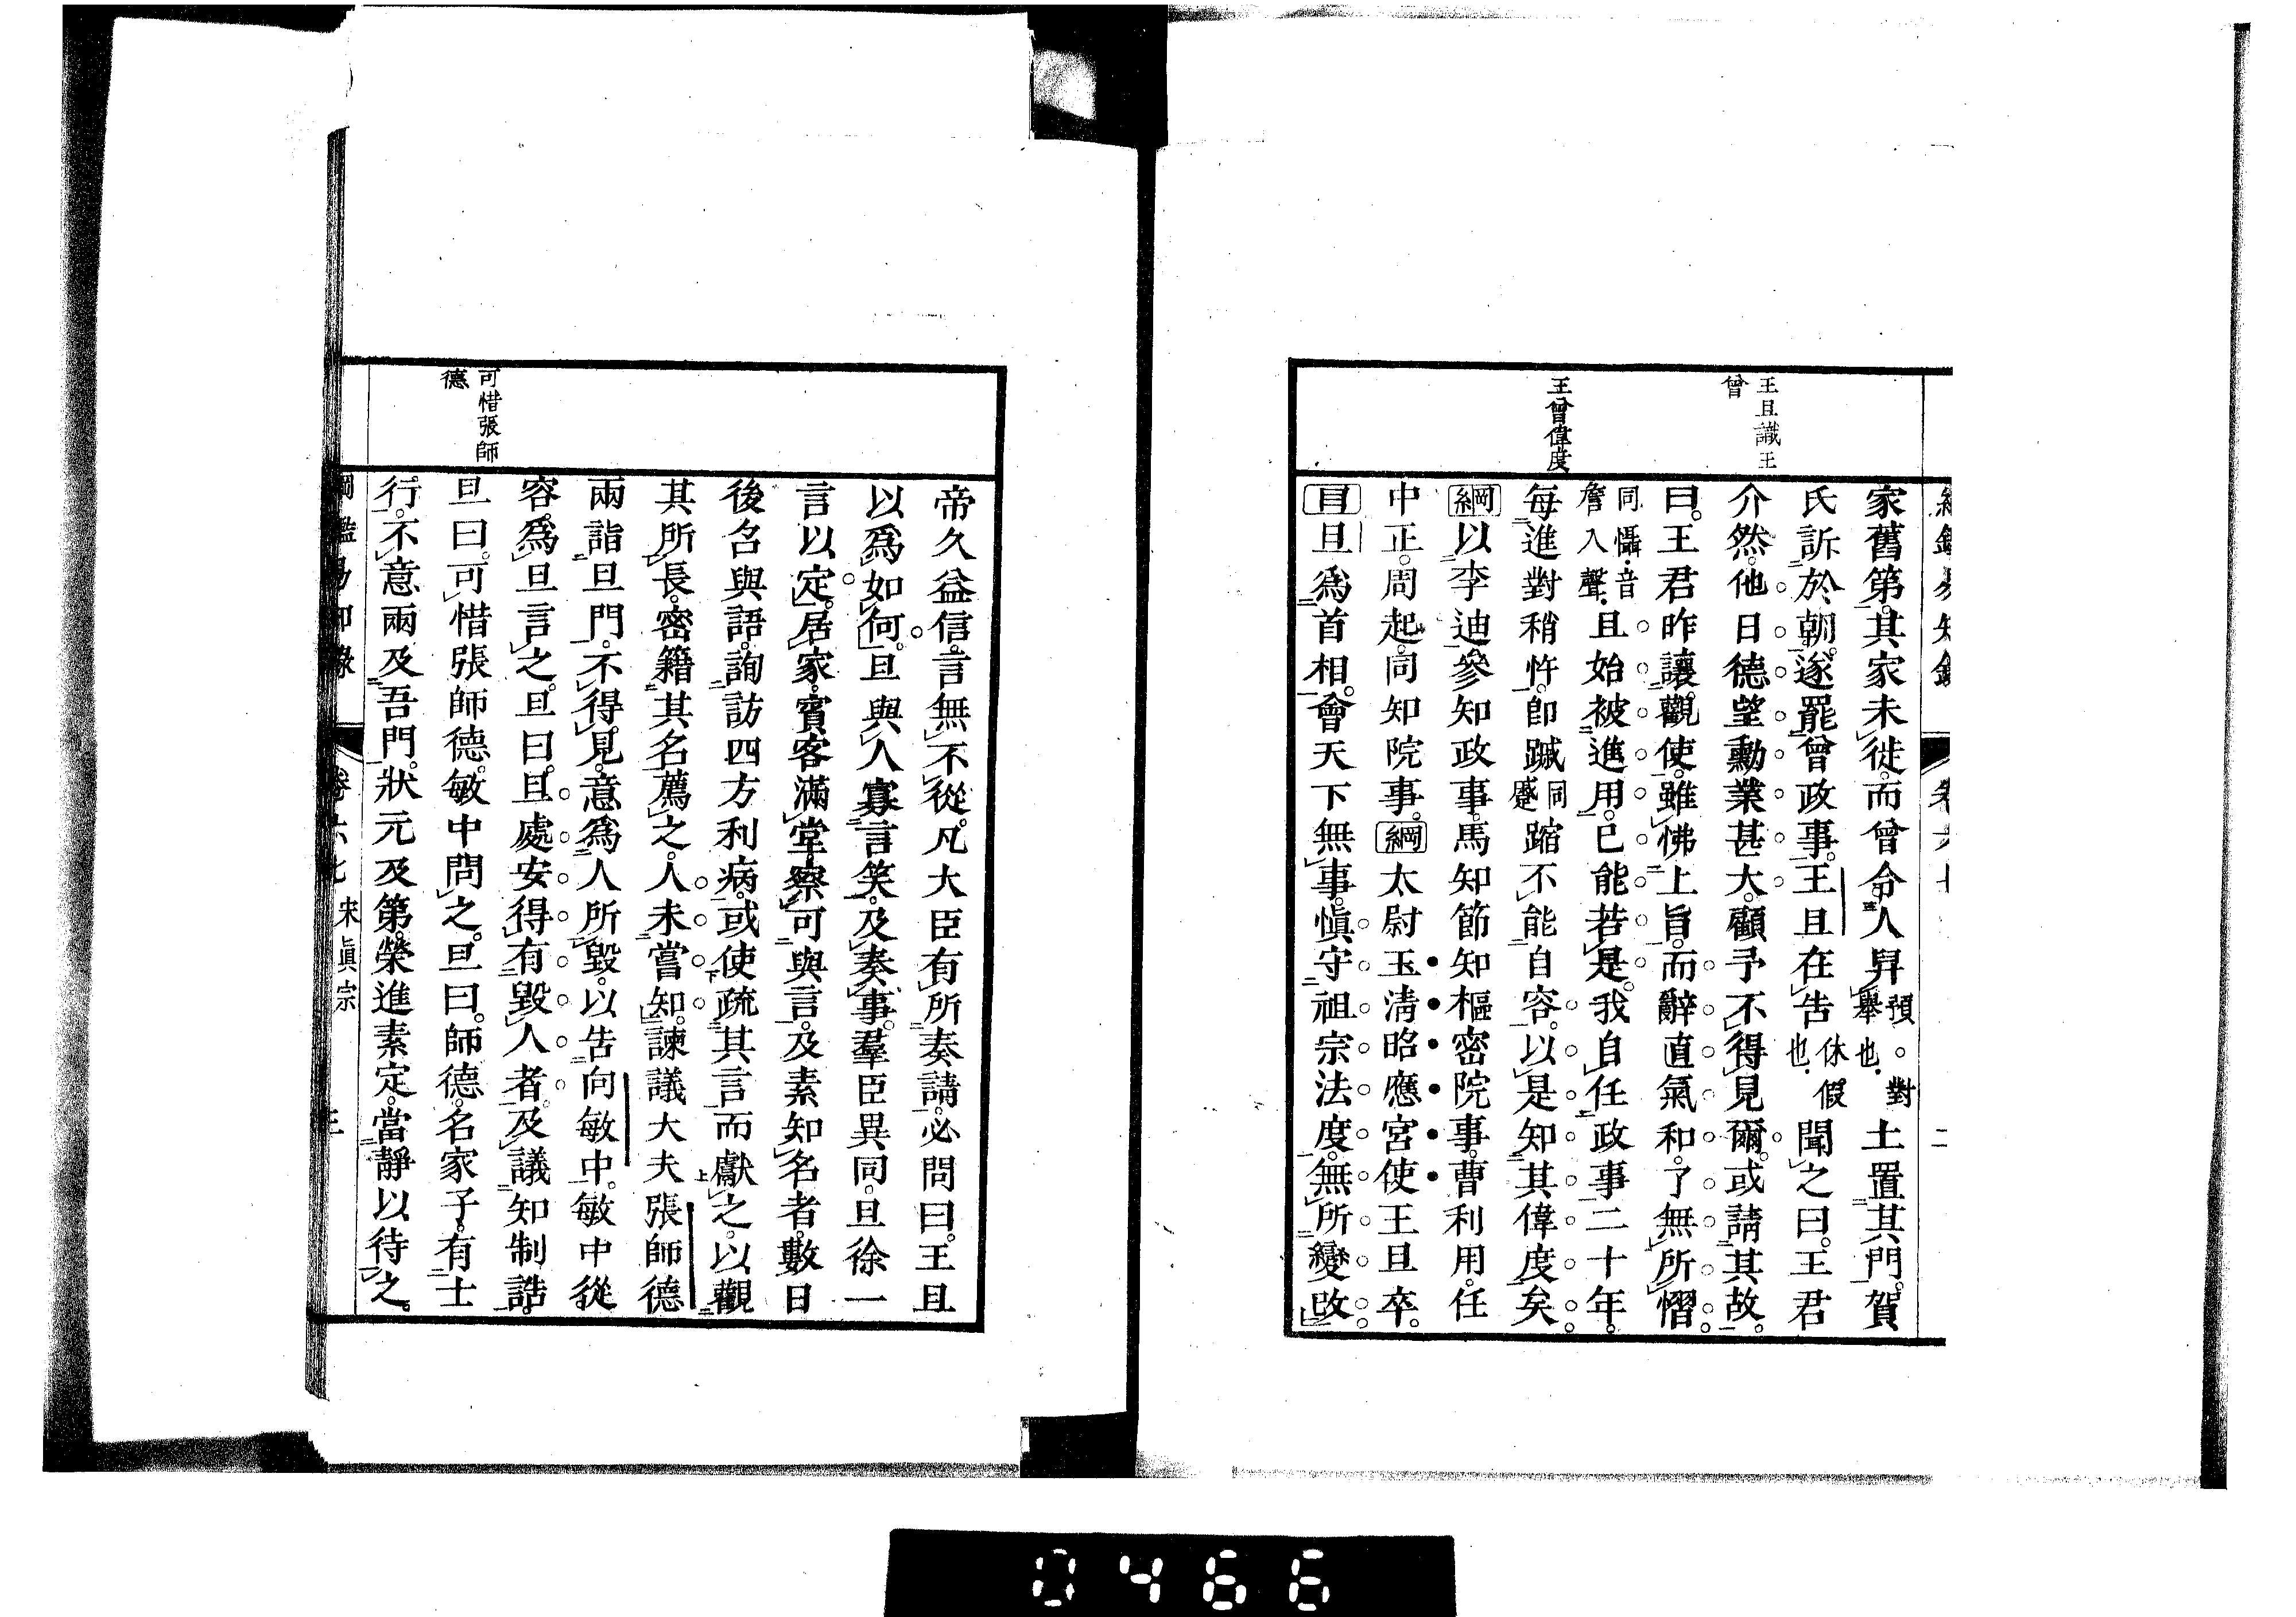 王旦識王
曾
王曾偉度
家舊第其家未徙而曾令人舁預舉也。對土置其門賀
氏訴於朝遂罷曾政事王旦在告休假也聞之曰王君
介然他日德望勳業甚大顧予不得見爾或請其故
曰王君昨讓觀使雖怫上旨而辭直氣和了無所慴
同懾音詹入聲且始被進用已能若是我自任政事二十年
每進對稍忤卽蹴同蹙蹜不能自容以是知其偉度矣
綱以李迪參知政事馬知節知樞密院事曹利用任
中正周起同知院事綱太尉玉淸昭應宮使王旦卒
目旦爲首相會天下無事愼守祖宗法度無所變改
可惜張師
德
帝久益信言無不從凡大臣有所奏請必問曰王旦
以爲如何旦與人寡言笑及奏事羣臣異同旦徐一
言以定居家賓客滿堂察可與言及素知名者數日
後名與語詢訪四方利病或使疏其言而獻之以觀
其所長密籍其名薦之人未嘗知諫議大夫張師德
兩詣旦門不得見意爲人所毀以告向敏中敏中從
容爲旦言之旦曰旦處安得有毀人者及議知制誥
旦曰可惜張師德敏中問之旦曰師德名家子有士
行不意兩及吾門狀元及第榮進素定當靜以待之
宋眞宗
0466